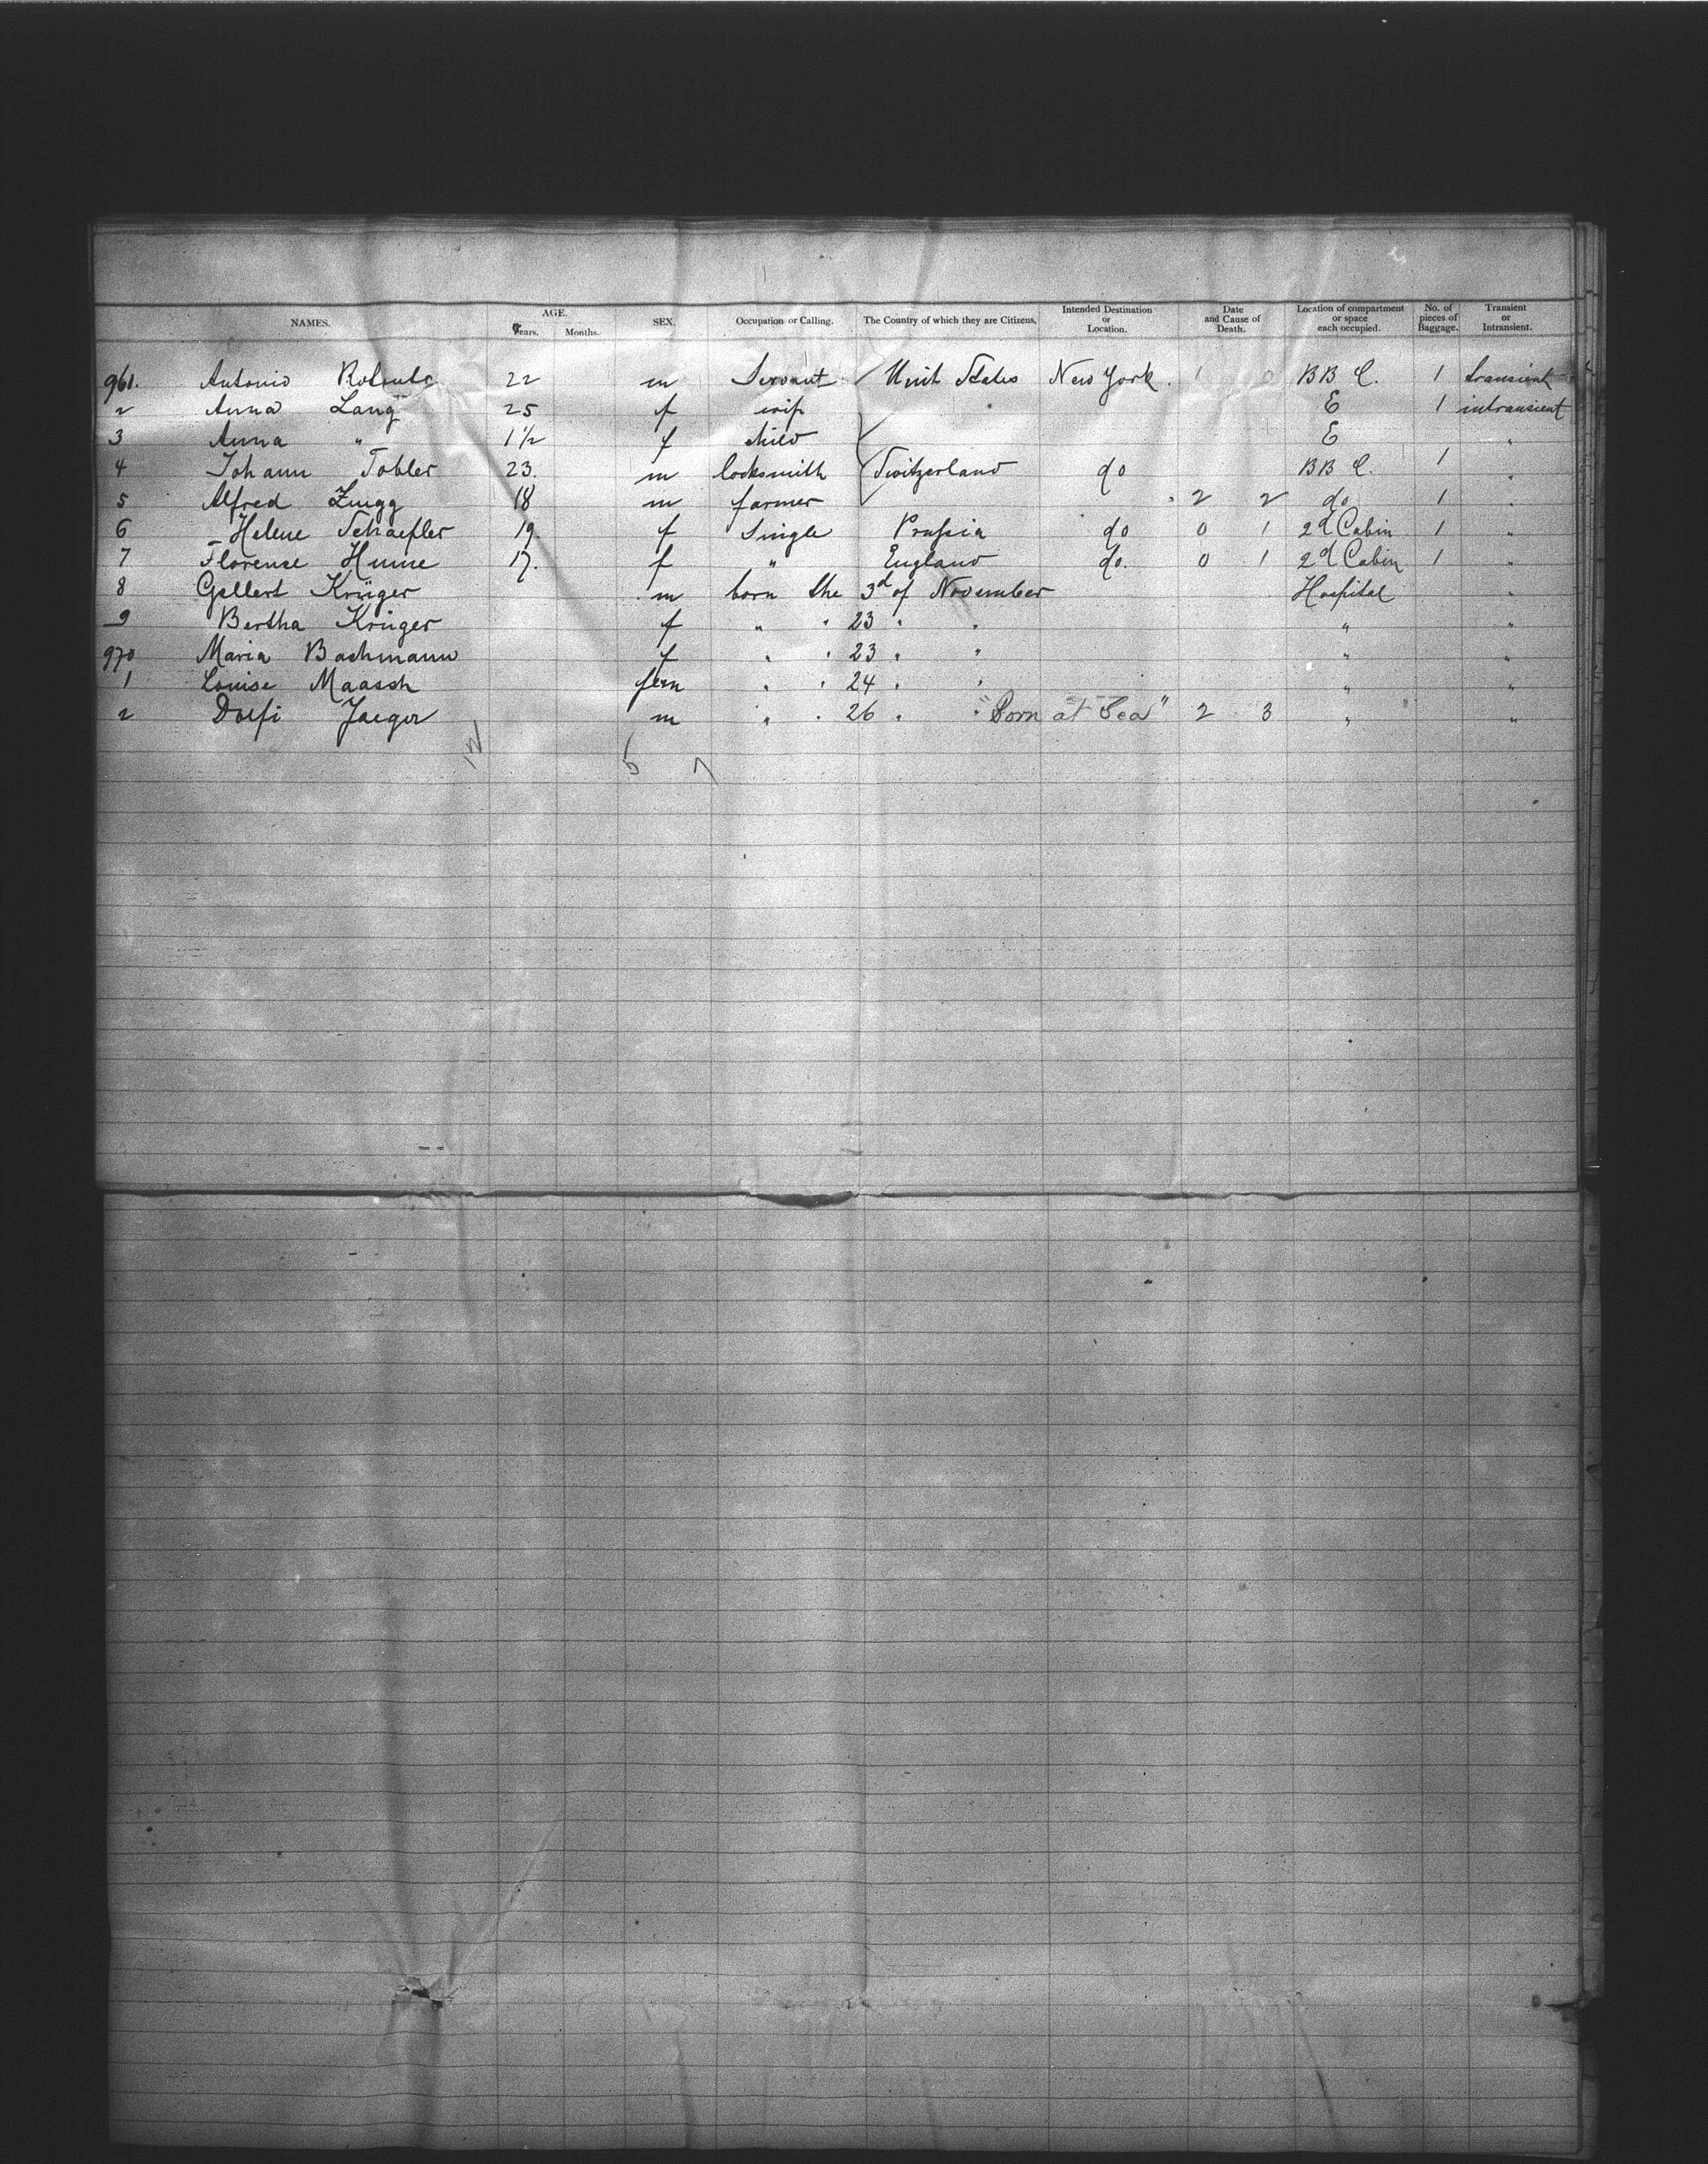 NAMES. AGE. Years. Months. SEX. Occupation or Calling. The Country of which they are Citizens, Intended Destination or Location. Date and Cause of Death. Location of compartment or space each occupied. No. of pieces of Baggage. Transient or Intransient.
961. Antonio 22 m Servant Unit States New York. 1 0 BB C. 1 transient
2 Anna Lang 25 f wife E 1 intransient
3 Anna " 1½ f child E "
4 Johann Tobler 23. m locksmith Switzerland do BB C. 1 "
5 Alfred Zuegg 18 m farmer 2 2 do 1 "
6 Helene Schaefler 19. f Single Prussia do 0 1 2d Cabin 1 "
7 Florence Hume 17. f " England do. 0 1 2d Cabin 1 "
8 Gellert Krüger m born the 3d of November Hospital "
9 Bertha Krüger f " " 23 " " " "
970 Maria Bachmann f " " 23 " " " "
1 Louise Maasch fem " " 24 " " " "
2 Dolfi Jaeger m " " 26 " " "Born at Sea" 2 3 " "
12 5 7